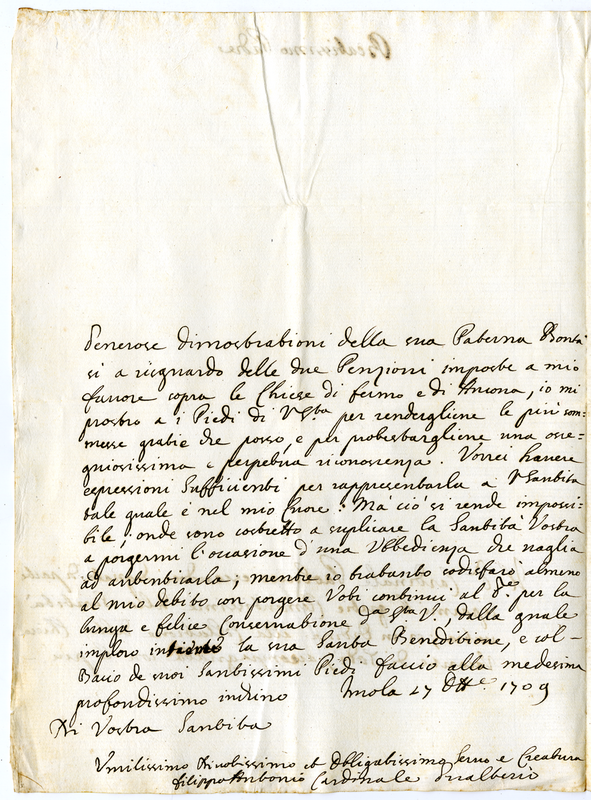 Generose dimostrationi della sua Paterna Bontà
si a risguardo delle due Pensioni imposte a mio
favore sopra le Chiese di fermo e di Ancona, io mi
prostro a i Piedi di V. S.ta per rendergliene le più som=
messe gratie che posso, e per protestargliene una osse=
quiosissima e perpetua riconoscenza. Vorrei havere
espressioni Sufficienti per rappresentarla a V. Santita
tale quale è nel mio Cuore: Mà ciò si rende impossi=
bile; onde sono costretto a suplicare la Santità Vostra
a porgermi l'occasione d'una Vbbedienza che vaglia
ad autenticarla; mentre io trattanto sodisfarò almeno
al mio debito con porgere Voti continui al S.re per la
lunga e felice Conservatione d.a S.ta V., dalla quale
imploro la sua Santa Beneditione, e col
Bacio de suoi Santissimi Piedi faccio alla medesima
profondissimo inchino Imola 27 Ott.e 1709
Di Vostra Santita
Vmilissimo Divotissimo et Obligatissimo Servo e Creatura
filippo Antonio Cardinale Gualterio